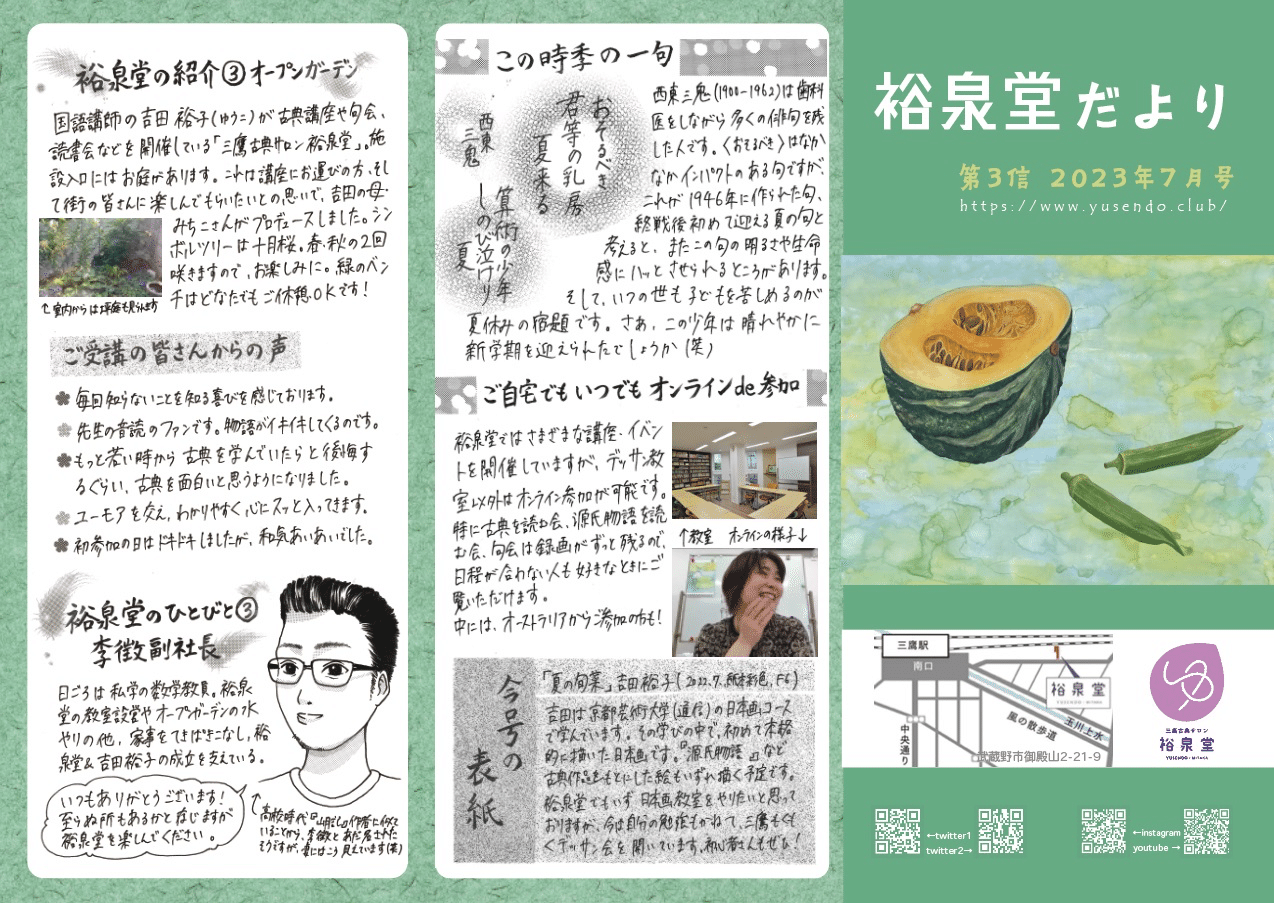 裕泉堂の紹介③オープンガーデン
国語講師の吉田裕子(ゆうこ)が古典講座や句会、
読書会などを開催している「三鷹古典サロン裕泉堂」。施
設入口にはお庭があります。これは講座にお運びの方、そし
て街の皆さんに楽しんでもらいたいとの思いで、吉田の母・
みちこさんがプロデュースしました。シン
ボルツリーは十月桜。春・秋の2回
咲きますので、お楽しみに。緑のベン
チはどなたでもご休憩OKです!
↑室内からは坪庭も見られます
ご受講の皆さんからの声
毎回知らないことを知る喜びを感じております。
先生の音読のファンです。物語がイキイキしてくるのです。
もっと若い時から古典を学んでいたらと後悔す
るぐらい、古典を面白いと思うようになりました。
ユーモアを交え、わかりやすく心にスッと入ってきます。
初参加の日はドキドキしましたが、和気あいあいでした。
裕泉堂のひとびと③
李徴副社長
日ごろは私学の数学教員。裕泉
堂の教室設営やオープンガーデンの水
やりの他、家事をてきぱきこなし、裕
泉堂&吉田裕子の成立を支えている。
いつもありがとうございます!
至らぬ所もあるかと存じますが
裕泉堂を楽しんでください。
高校時代『山月記』の作者に似て
いることから、李徴とあだ名された
そうですが、妻にはこう見えています(笑)
この時季の一句
おそるべき
君等の乳房
夏来る
西東
三鬼
算術の少年
しのび泣けり
夏
西東三鬼(1900-1962)は歯科
医をしながら多くの俳句を残
した人です。〈おそるべき〉はなか
なかインパクトのある句ですが、
これが1946年に作られた句、
終戦後初めて迎える夏の句と
考えると、またこの句の明るさや生命
感にハッとさせられるところがあります。
そして、いつの世も子どもを苦しめるのが
夏休みの宿題です。さあ、この少年は晴れやかに
新学期を迎えられたでしょうか(笑)
ご自宅でもいつでもオンラインde参加
裕泉堂ではさまざまな講座・イベン
トを開催していますが、デッサン教
室以外はオンライン参加が可能です。
特に古典を読む会、源氏物語を読
む会、句会は録画がずっと残るので、
日程が合わない人も好きなときにご
覧いただけます。
中には、オーストラリアからご参加の方も!
↑教室 オンラインの様子↓
今号の
表紙
「夏の旬菜」吉田裕子(2022.7.紙本彩色、F6)
吉田は京都芸術大学(通信)の日本画コース
で学んでいます。その学びの中で、初めて本格
的に描いた日本画です。『源氏物語』など
古典作品をもとにした絵もいずれ描く予定です。
裕泉堂でもいずれ日本画教室をやりたいと思って
おりますが、今は自分の勉強もかねて、三鷹もくも
くデッサン会を開いています。初心者さんもぜひ!
裕泉堂だより
第3信 2023年7月号
https://www.yusendo.club/
三鷹駅
南口
中央通り
裕泉堂
玉川上水
風の散歩道
武蔵野市御殿山2-21-9
三鷹古典サロン
裕泉堂
←twitter1
twitter2→
←instagram
youtube→